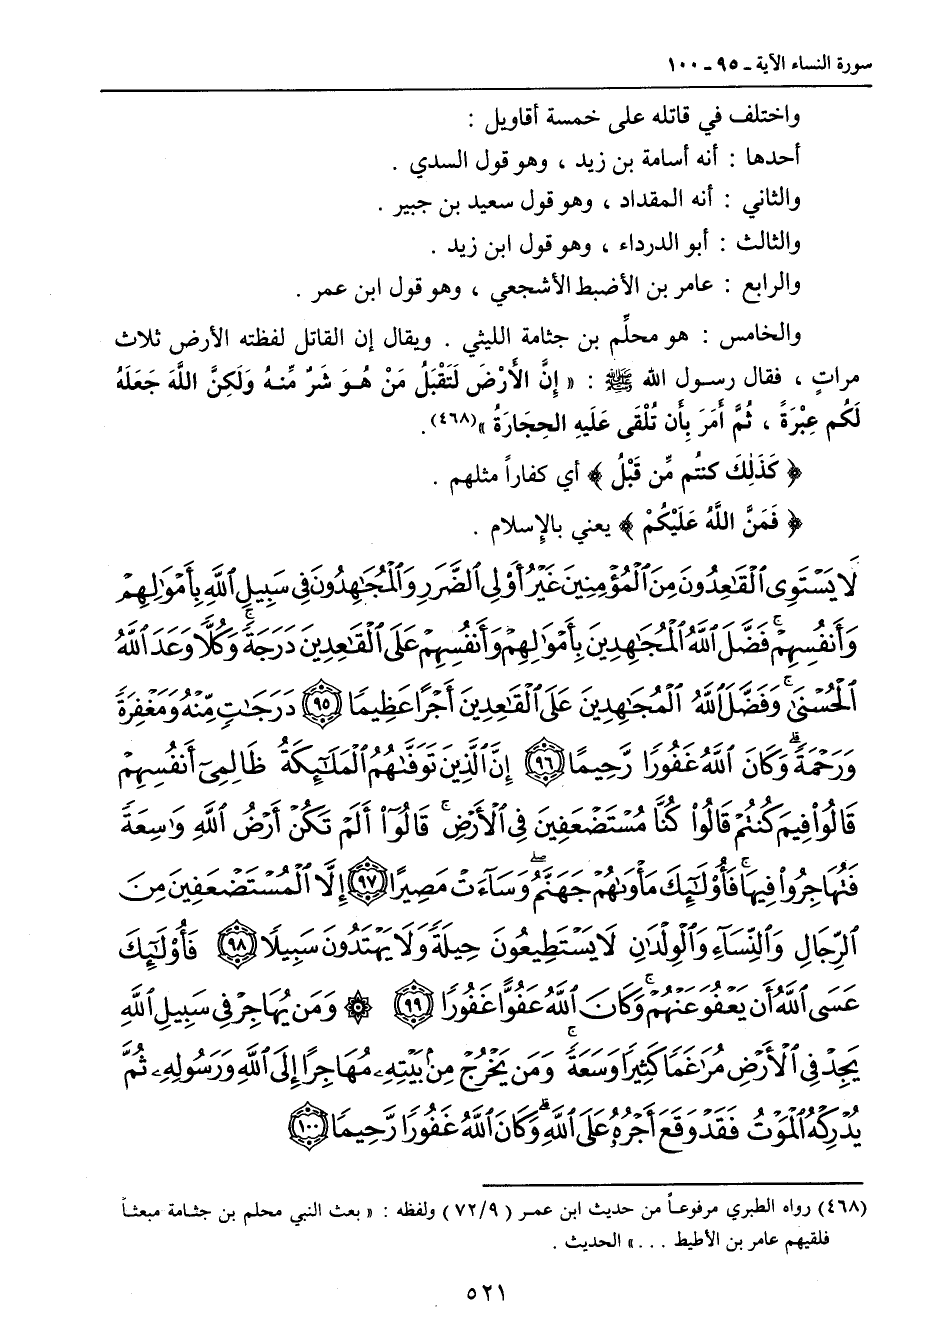 سورة النساء الآية ـ ٩٥ ـ ١٠٠
واختلف في قاتله على خمسة أقاويل :
أحدها : أنه أسامة بن زيد ، وهو قول السدي .
والثاني : أنه المقداد ، وهو قول سعيد بن جبير .
والثالث : أبو الدرداء ، وهو قول ابن زيد .
والرابع : عامر بن الأضبط الأشجعي ، وهو قول ابن عمر .
والخامس : هو محلِّم بن جثامة الليثي . ويقال إن القاتل لفظته الأرض ثلاث
مرات ، فقال رسول الله ﷺ : « إِنَّ الأَرْضَ لَتَقْبَلُ مَنْ هُوَ شَرٌ مِّنهُ وَلَكِنَّ اللَّهَ جَعَلَهُ
لَكُم عِبْرَةً ، ثُمَّ أَمَرَ بِأَن تُلْقَى عَلَيهِ الحِجَارَةُ »(٤٦٨).
﴿ كَذَلِكَ كنتُم مِّن قَبْلُ ﴾ أي كفاراً مثلهم .
﴿ فَمَنَّ اللَّهُ عَلَيْكُمْ ﴾ يعني بالإسلام .
لَّا يَسْتَوِى الْقَٰعِدُونَ مِنَ الْمُؤْمِنِينَ غَيْرُ أُوْلِى الضَّرَرِ وَالْمُجَٰهِدُونَ فِى سَبِيلِ اللَّهِ بِأَمْوَٰلِهِمْ
وَأَنفُسِهِمْ ۚ فَضَّلَ اللَّهُ الْمُجَٰهِدِينَ بِأَمْوَٰلِهِمْ وَأَنفُسِهِمْ عَلَى الْقَٰعِدِينَ دَرَجَةً ۚ وَكُلًّا وَعَدَ اللَّهُ
الْحُسْنَىٰ ۚ وَفَضَّلَ اللَّهُ الْمُجَٰهِدِينَ عَلَى الْقَٰعِدِينَ أَجْرًا عَظِيمًا ٩٥ دَرَجَٰتٍ مِّنْهُ وَمَغْفِرَةً
وَرَحْمَةً ۚ وَكَانَ اللَّهُ غَفُورًا رَّحِيمًا ٩٦ إِنَّ الَّذِينَ تَوَفَّىٰهُمُ الْمَلَٰٓئِكَةُ ظَالِمِىٓ أَنفُسِهِمْ
قَالُواْ فِيمَ كُنتُمْ قَالُواْ كُنَّا مُسْتَضْعَفِينَ فِى الْأَرْضِ ۚ قَالُوٓاْ أَلَمْ تَكُنْ أَرْضُ اللَّهِ وَٰسِعَةً
فَتُهَاجِرُواْ فِيهَا ۚ فَأُوْلَٰٓئِكَ مَأْوَىٰهُمْ جَهَنَّمُ ۖ وَسَآءَتْ مَصِيرًا ٩٧ إِلَّا الْمُسْتَضْعَفِينَ مِنَ
الرِّجَالِ وَالنِّسَآءِ وَالْوِلْدَٰنِ لَا يَسْتَطِيعُونَ حِيلَةً وَلَا يَهْتَدُونَ سَبِيلًا ٩٨ فَأُوْلَٰٓئِكَ
عَسَى اللَّهُ أَن يَعْفُوَ عَنْهُمْ ۚ وَكَانَ اللَّهُ عَفُوًّا غَفُورًا ٩٩ ۞ وَمَن يُهَاجِرْ فِى سَبِيلِ اللَّهِ
يَجِدْ فِى الْأَرْضِ مُرَٰغَمًا كَثِيرًا وَسَعَةً ۚ وَمَن يَخْرُجْ مِنۢ بَيْتِهِۦ مُهَاجِرًا إِلَى اللَّهِ وَرَسُولِهِۦ ثُمَّ
يُدْرِكْهُ الْمَوْتُ فَقَدْ وَقَعَ أَجْرُهُۥ عَلَى اللَّهِ ۗ وَكَانَ اللَّهُ غَفُورًا رَّحِيمًا ١٠٠
(٤٦٨) رواه الطبري مرفوعاً من حديث ابن عمر ( ٧٢/٩ ) ولفظه : « بعث النبي محلم بن جثامة مبعثاً
فلقيهم عامر بن الأطيط . . . » الحديث .
٥٢١